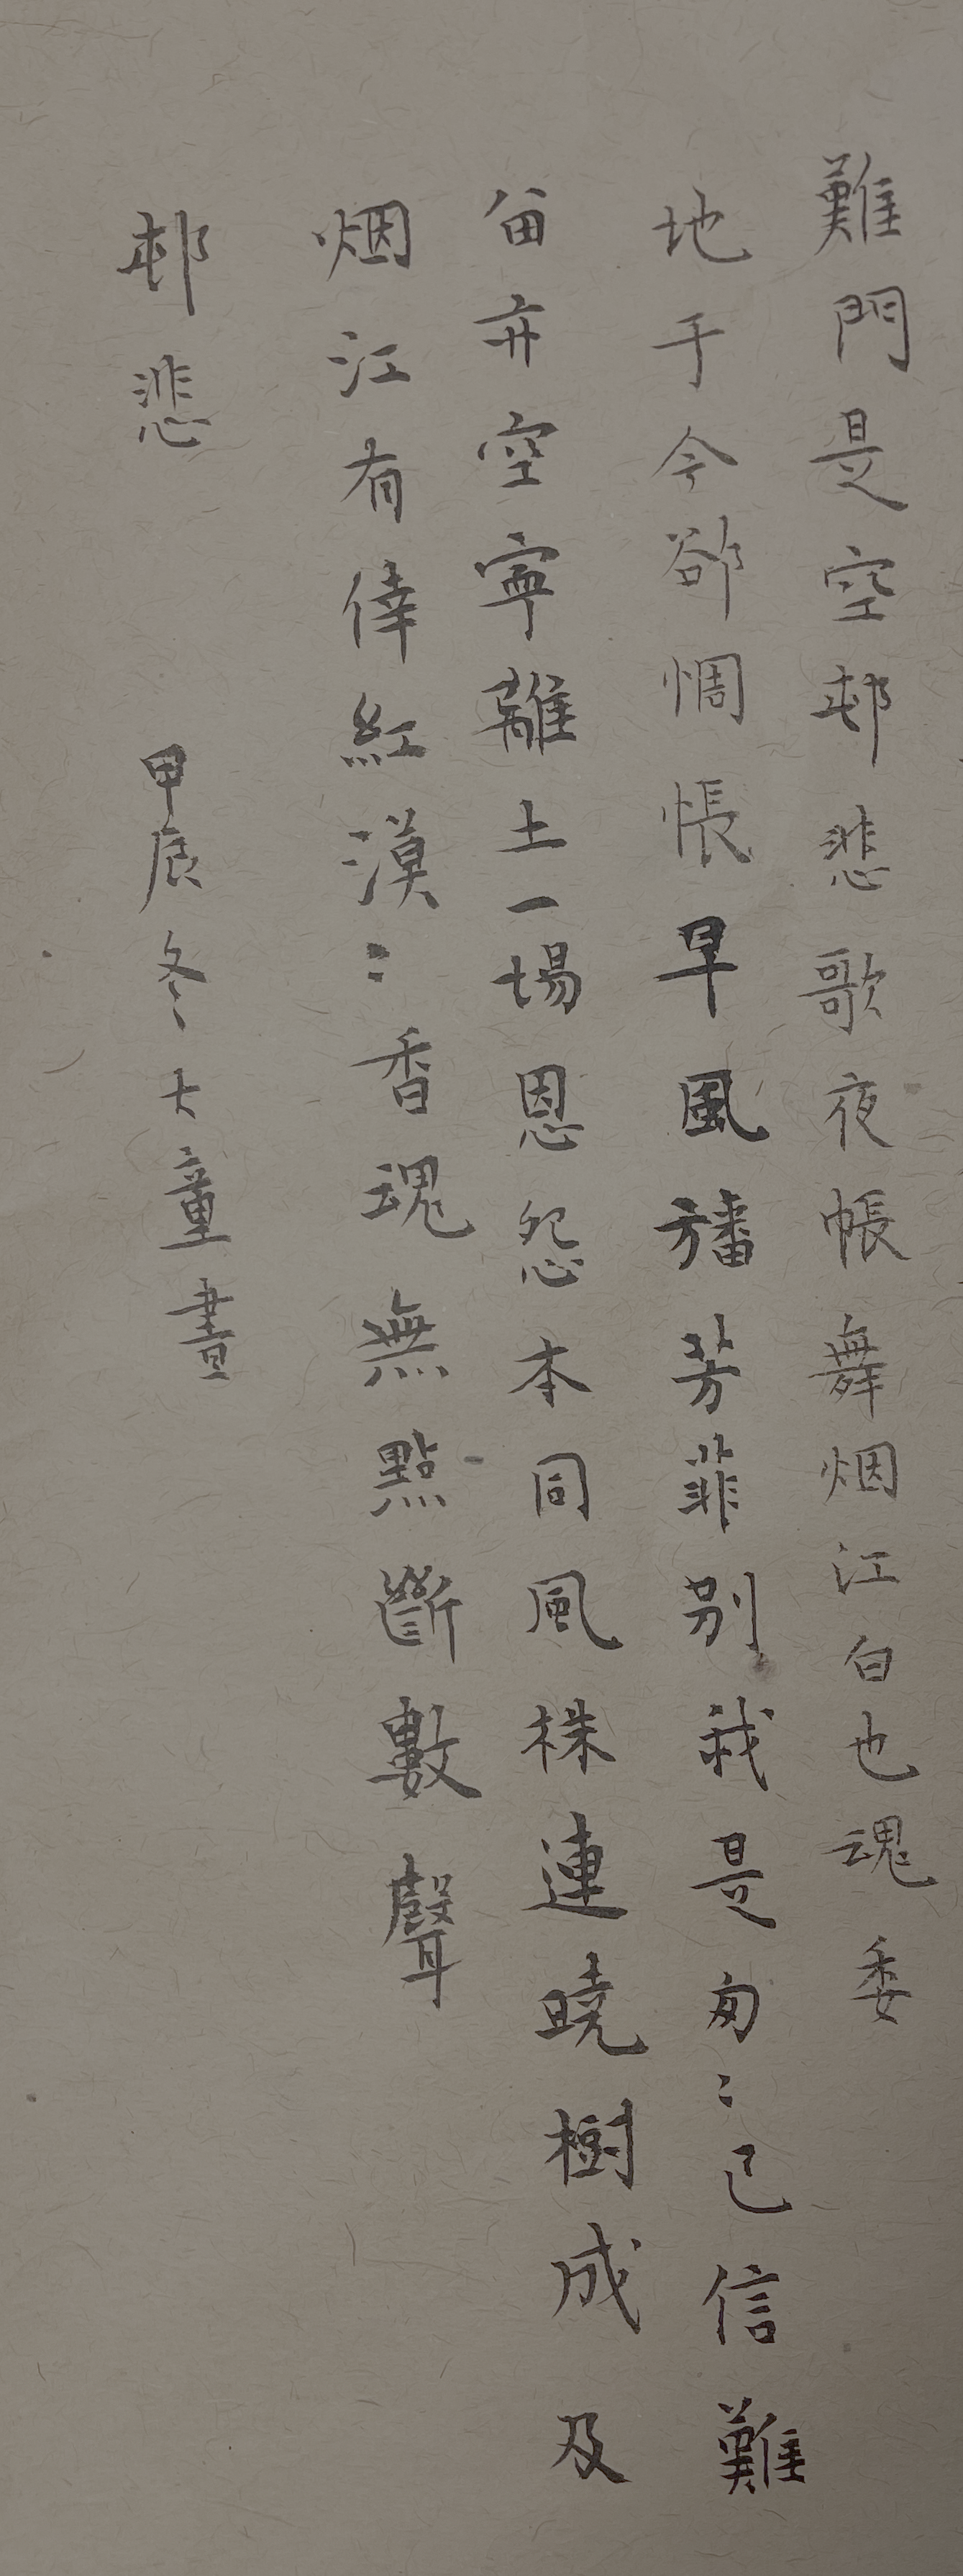 難門是空邨悲歌夜帳舞烟江白也魂委
地于今郤惆悵早風旛芳菲别我是匆〻已信難
留弃空寧離土一場恩怨本同風株連曉樹成及
烟江有倖紅漠〻香魂無點斷數聲
邨悲
甲辰冬大童書